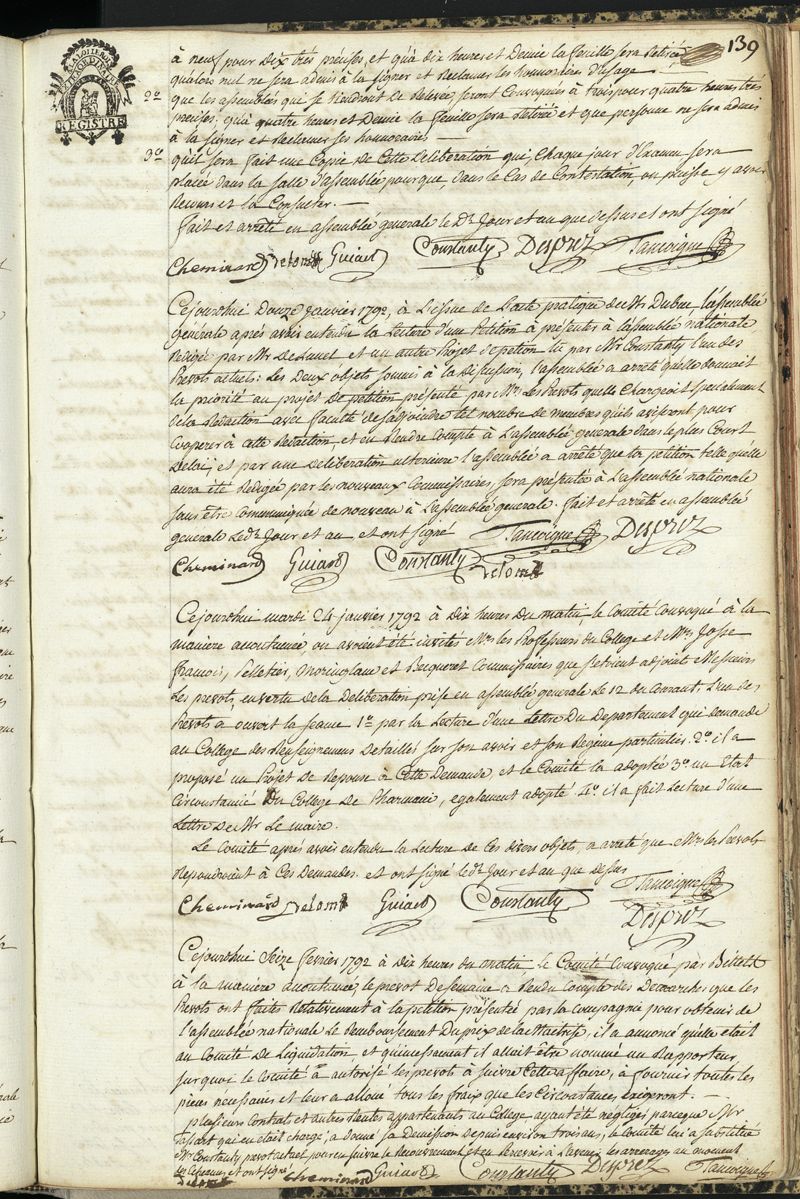 139
LA LOI LE ROI
EXTRAORDINAIRE
REGISTRE
à neuf pour Dix très précises, et qu'à dix heures et Demie la feuille sera Retirée
qu'alors nul ne sera admis à la signer et Reclamer les honnoraires d'usage
2o que les assemblées qui se tiendront Ce Relevée, seront Convoquées à trois pour quatre heures très
precises, qu'à quatre heures et Demie la feuille sera Retirée et que personne ne sera admis
à la signer et Reclamer ses honoraires
3o qu'il sera fait une Copie de Cette Deliberation qui, Chaque jour d'Examen sera
placée dans la salle d'assemblée pour que, dans le Cas de Contestation, on puisse y avoir
Recours et la Consulter.
fait et arrêté en assemblée generale le Dt Jour et an que dessus et ont signé
Cheminard Trelomt Guiart Coustanty Desprez Tancoigne
Cejourdhui Douze Janvier 1792, à L'issue de L'acte pratique de Mr Dubuc, l'assemblée
Générale après avoir entendu la Lecture d'une Petition à présenter à l'assemblée nationale
Redigée par Mr De Lunel et un autre Projet d'petion lu par Mr Coustanty l'un des
Prevots actuels: Les Deux objets soumis à la Discussion, L'assemblée a arreté qu'elle donnoit
la priorité au projet de petition présenté par Mrs Les Prevots qu'elle Chargeoit specialement
de la Redaction avec faculté de s'adjoindre tel nombre de membres qu'ils aviseront pour
Cooperer à cette Redaction, et en Rendre Compte à L'assemblée generale dans le plus Court
Delai; et par une Deliberation ulterieure l'assemblée a arrêté que la petition telle qu'elle
aura été Redigée par les nouveaux Commissaires, sera présentée à L'assemblée nationale
sans être Communiquée de nouveau à L'assemblée generale. fait et arrêté en assemblée
generale Ledt Jour et an et ont signé Tancoigne Desprez
Cheminard Guiart Coustanty Trelomt
Cejourdhui mardi 24 janvier 1792 à Dix heures Du matin, le Comité Convoqué à la
manière accoutumée, ou avoient été invités Mrs les Professeurs du College et Mrs Josse
francois, Pelletier, Moringlane et Becqueret Commissaires que se sont adjoint Messieurs
Les prevots, en vertu de la Deliberation prise en assemblée generale Le 12 du Courant. L'un des
Prevots a ouvert la seance 1o par la Lecture d'une Lettre Du Departement qui demande
au College des Renseignemens Detaillés sur son avoir et son Regime particulier. 2o il a
proposé un Projet de Reponse à Cette Demande, et le Comité la adoptée 3o un Etat
Circonstancié Du College De Pharmacie, egalement adopté. 4o il a fait Lecture d'une
Lettre De Mr Le maire.
Le Comité après avoir entendu la Lecture de Ces divers objets, a arreté que Mrs les Prevots
Repondroient à Ces Demandes. et ont signé ledt Jour et an que dessus
Tancoigne
Cheminard Trelomt Guiart Coustanty
Desprez
Cejourdhui Seize fevrier 1792 à Dix heures du matin, le Comité Convoqué par Billets
à la manière accoutumée, le prevot De semaine a Rendu Compte des Demarches que les
Prevots ont faites Relativement à la petition présentée par la Compagnie pour obtenir de
l'assemblée nationale le Remboursement Du prix de la Maitrise, il a annoncé qu'elle etait
au Comité De Liquidation, et qu'incessament il allait être nommé un Rapporteur,
sur quoi le Comité a autorisé les prevots à suivre Cette affaire, à fournir toutes les
pieces necessaires et leur a alloué tous les frais que les Circonstances exigeront.
plusieurs Contrats et autres Rentes appartenants au College ayant été negligés parceque Mr
Tassart qui en était chargé, a donné sa Demission depuis environ trois ans, le Comité lui a substitué
Mr Coustanty prevot actuel pour en suivre le Recouvrement et en Recevoir à L'avenir les arrerages au moment
et ont signé
Trelomt Cheminard Guiart Coustanty Desprez Tancoigne